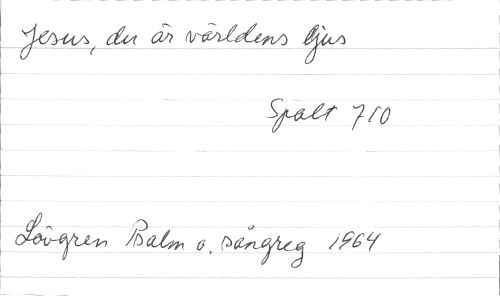 Jesus, du är världens ljus
Spalt 710
Lövgren Psalm o. sångreg 1964